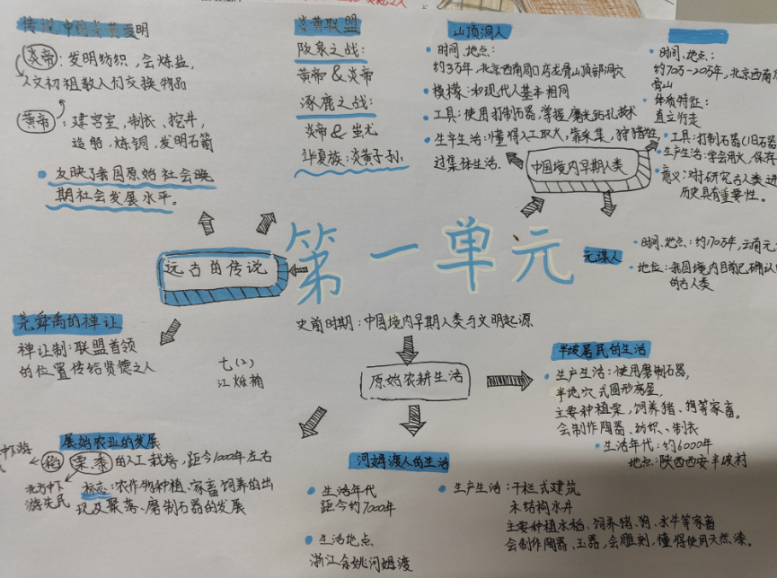 传说中的炎黄发明
炎帝：发明纺织，会煉盐，
人文初祖教人们交换物品
黄帝：建宫室，制衣、挖井，
造船，炼铜，发明石箭
反映了我国原始社会晚
期社会发展水平。
炎黄联盟
阪泉之战：
黄帝&炎帝
涿鹿之战：
炎帝&蚩尤
华夏族：炎黄子孙。
山顶洞人
时间、地点：
约3万年，北京西南周口店龙骨山顶部洞穴
模样：和现代人基本相同
工具：使用打制石器，掌握磨光钻孔技术
生产生活：懂得人工取火，靠采集，狩猎
过集体生活。
时间、地点：
约70万-20万年，北京西南
骨山
体质特征：
直立行走
工具：打制石器（旧石器
生产生活：学会用火，保存
意义：对研究古人类进
历史具有重要性。
中国境内早期人类
元谋人
时间、地点：约170万年，云南元
地位：我国境内目前已确认
的古人类
远古的传说
第一单元
史前时期：中国境内早期人类与文明起源
尧舜禹的禅让
禅让制：联盟首领
的位置传给贤德之人
七(2)
原始农耕生活
半坡居民的生活
生产生活：使用磨制石器，
半地穴式圆形房屋，
主要种植粟，饲养猪、狗等家畜。
会制作陶器、纺织、制衣
生活年代：约6000年
地点：陕西西安半坡村
原始农业的发展
稻 粟 黍 的人工栽培，距今1000年左右
标志：农作物种植、家畜饲养的出
现及聚落、磨制石器的发展
河姆渡人的生活
生活年代
距今约7000年
生活地点
浙江余姚河姆渡
生产生活：干栏式建筑
木结构水井
主要种植水稻、饲养猪、狗、水牛等家畜
会制作陶器，玉器，会雕刻，懂得使用天然漆。